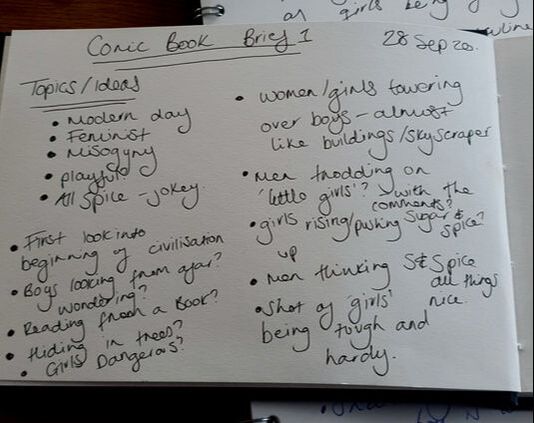 as girls being
Comic Book Brief 1
28 Sep 20.
Topics/Ideas
• Modern day
• Feminist
• Misogyny
• playful
• All Spice - jokey.
• First look into
beginning of civilisation
• Boys looking from afar?
wondering?
• Reading from a Book?
• Hiding in trees?
• Girls Dangerous?
• women/girls towering
over boys - almost
like buildings/skyscraper
• Men trodding on
'little girls'? with the
comments?
• girls rising/pushing Sugar &
up spice?
• Men thinking S&Spice
all things
nice.
• Shot of 'girls'
being tough and
hardy.